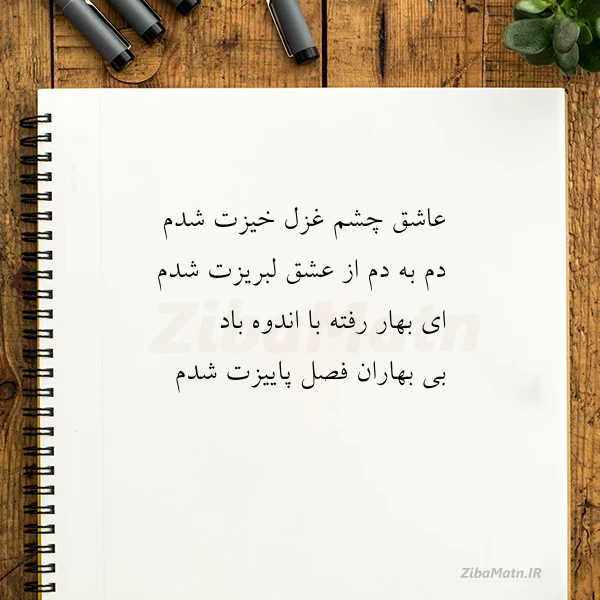 عاشق چشم غزل خیزت شدم
دم به دم از عشق لبریزت شدم
ای بهار رفته با اندوه باد
بی بهاران فصل پاییزت شدم
ZibaMatn
ZibaMatn.IR